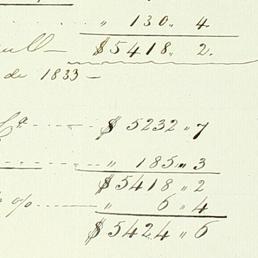 " 130. 4
$5418. 2.
de 1833 –
$ 5232 " 7
" 185 " 3
$5418 " 2
" 6 " 4
$5424 " 6